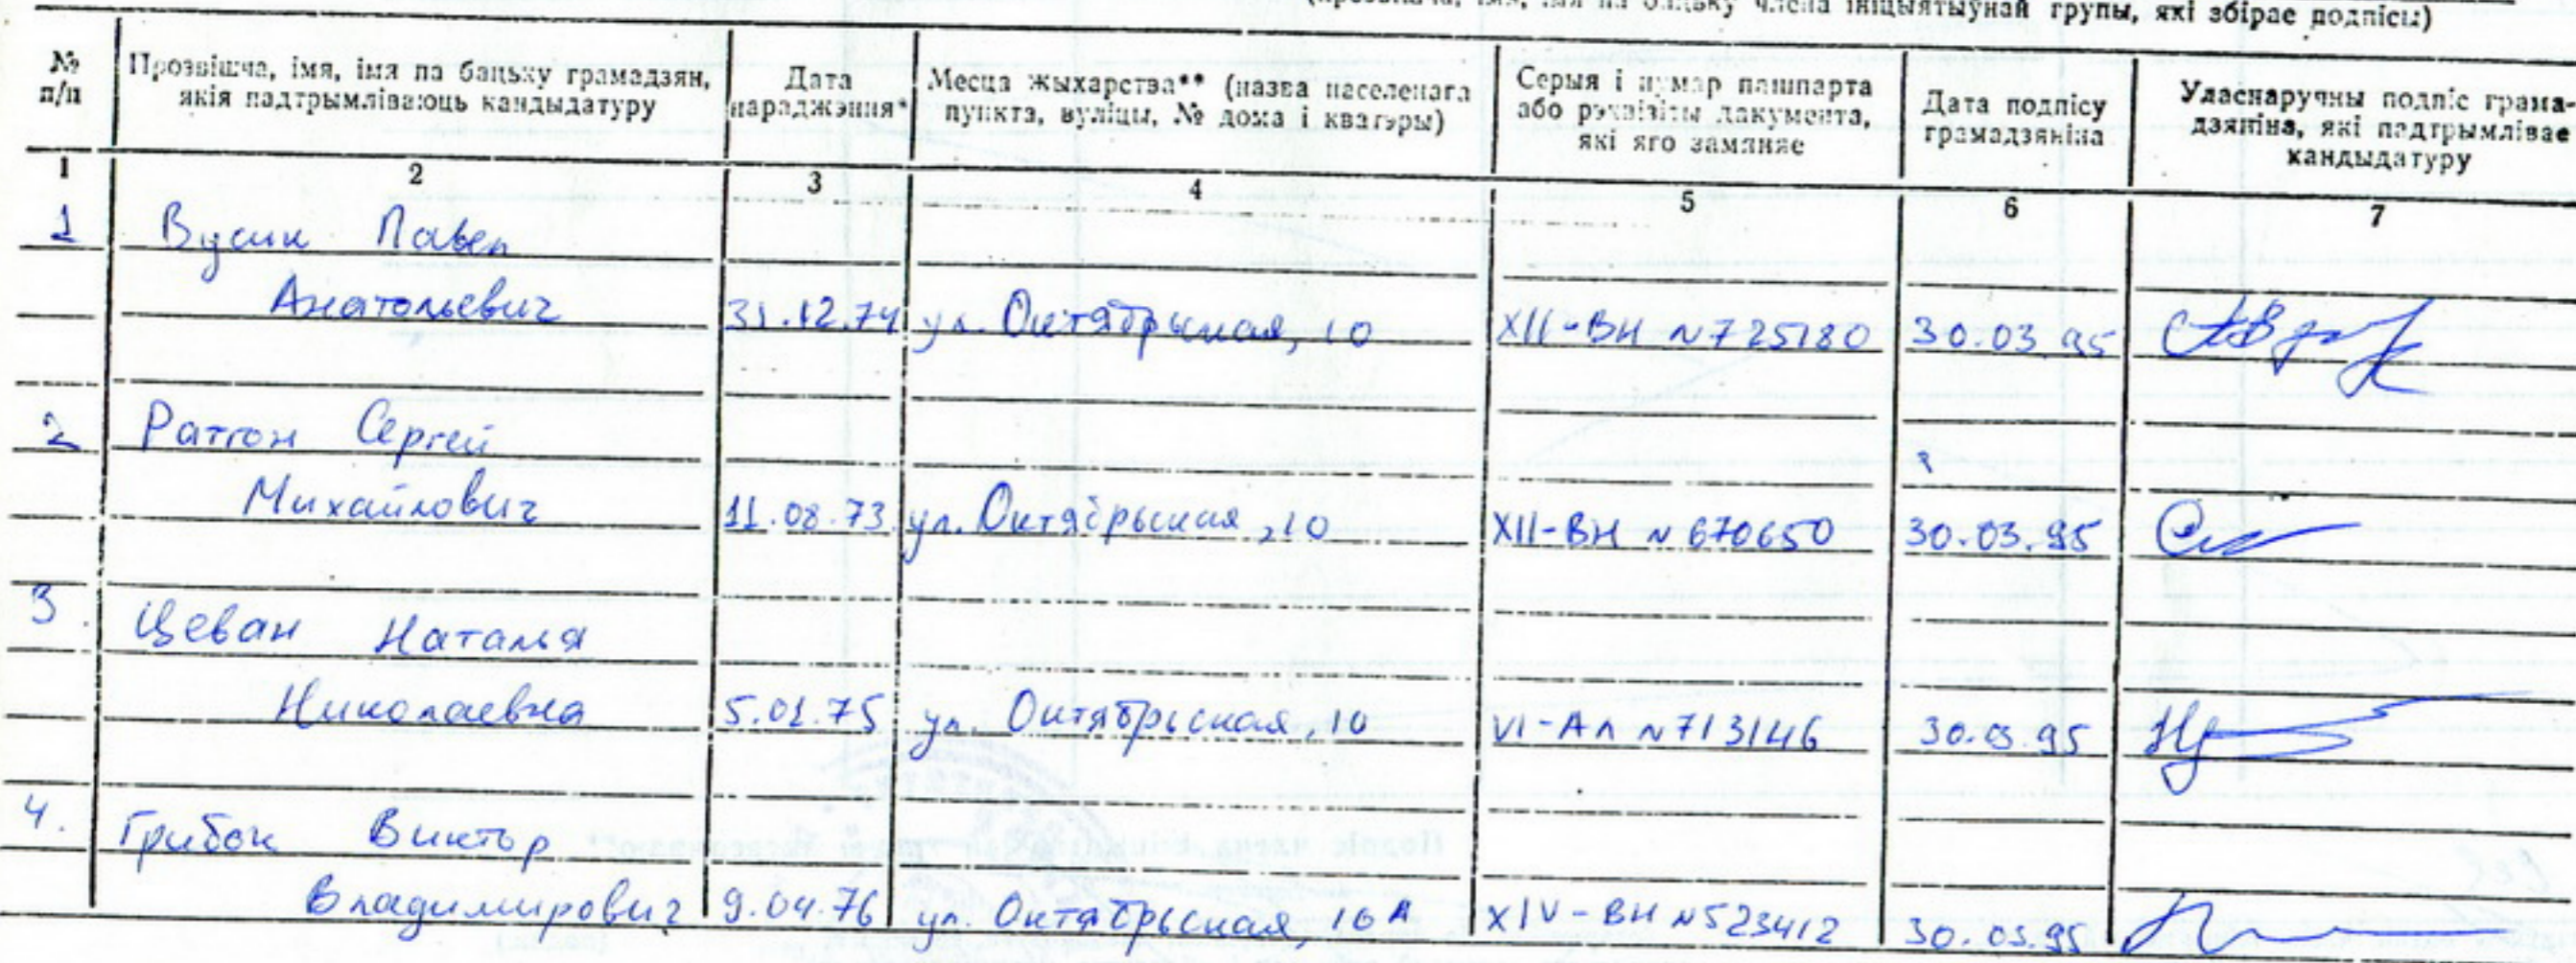 члена ініцыятыўнай групы, які збірае подпісы)
№ п/п
Прозвішча, імя, імя па бацьку грамадзян, якія падтрымліваюць кандыдатуру
Дата нараджэння*
Месца жыхарства** (назва населенага пункта, вуліцы, № дома і кватэры)
Серыя і нумар пашпарта або рэквізіты дакумента, які яго замяняе
Дата подпісу грамадзяніна
Уласнаручны подпіс грамадзяніна, які падтрымлівае кандыдатуру
1 2 3 4 5 6 7
1 Вусик Павел
Анатольевич 31.12.74 ул. Октябрьская, 10 XII-ВН N 725180 30.03.95
2 Сергей
Михайлович 11.08.73 ул. Октябрьская, 10 XII-ВН N 670650 30.03.95
3. Цеван Наталья
Николаевна 5.01.75 ул. Октябрьская, 10 VI-АЛ N 713146 30.03.95
4. Грибок Виктор
Владимирович 9.04.76 ул. Октябрьская, 10А XIV-ВН N 523412 30.03.95